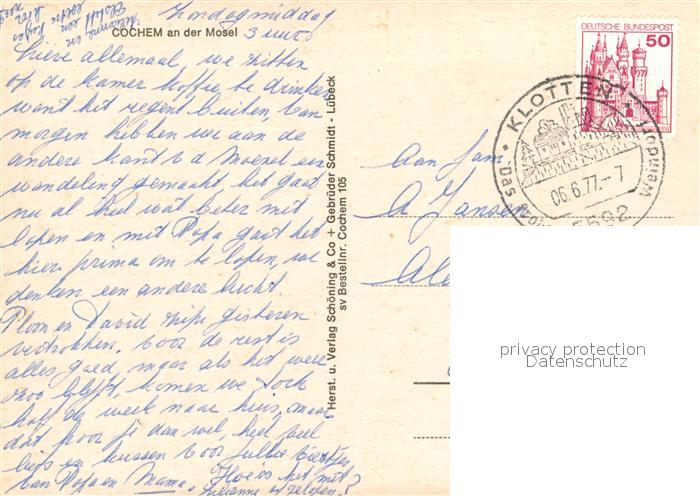 Zondagmiddag
3 uur
COCHEM an der Mosel
Lieve allemaal, we zitten
op de kamer koffie te drinken
want het regent buiten, van
morgen hebben we aan de
andere kant v d Moezel een
wandeling gemaakt, het gaat
nu al heel wat beter met
lopen en met Papa gaat het
hier prima om te lopen, we
denken een andere lucht.
en David zijn gisteren
vertrokken. Voor de rest is
alles goed, maar als het weer
zoo blijft, komen we toch
de week naar huis, maar
dat hoor je dan wel, heel veel
liefs en kussen voor jullie
van Papa en Mama. Hoe is het met
Julianne
Herst. u. Verlag Schöning & Co + Gebrüder Schmidt - Lübeck
sv Bestellnr. Cochem 105
Aan Fam.
A Jansen
DEUTSCHE BUNDESPOST
50
KLOTTEN
06.6.77.-7
5592
"Das
privacy protection
Datenschutz